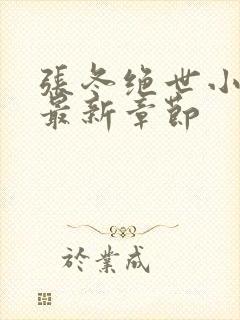 張冬绝世小
最新章節
於業成